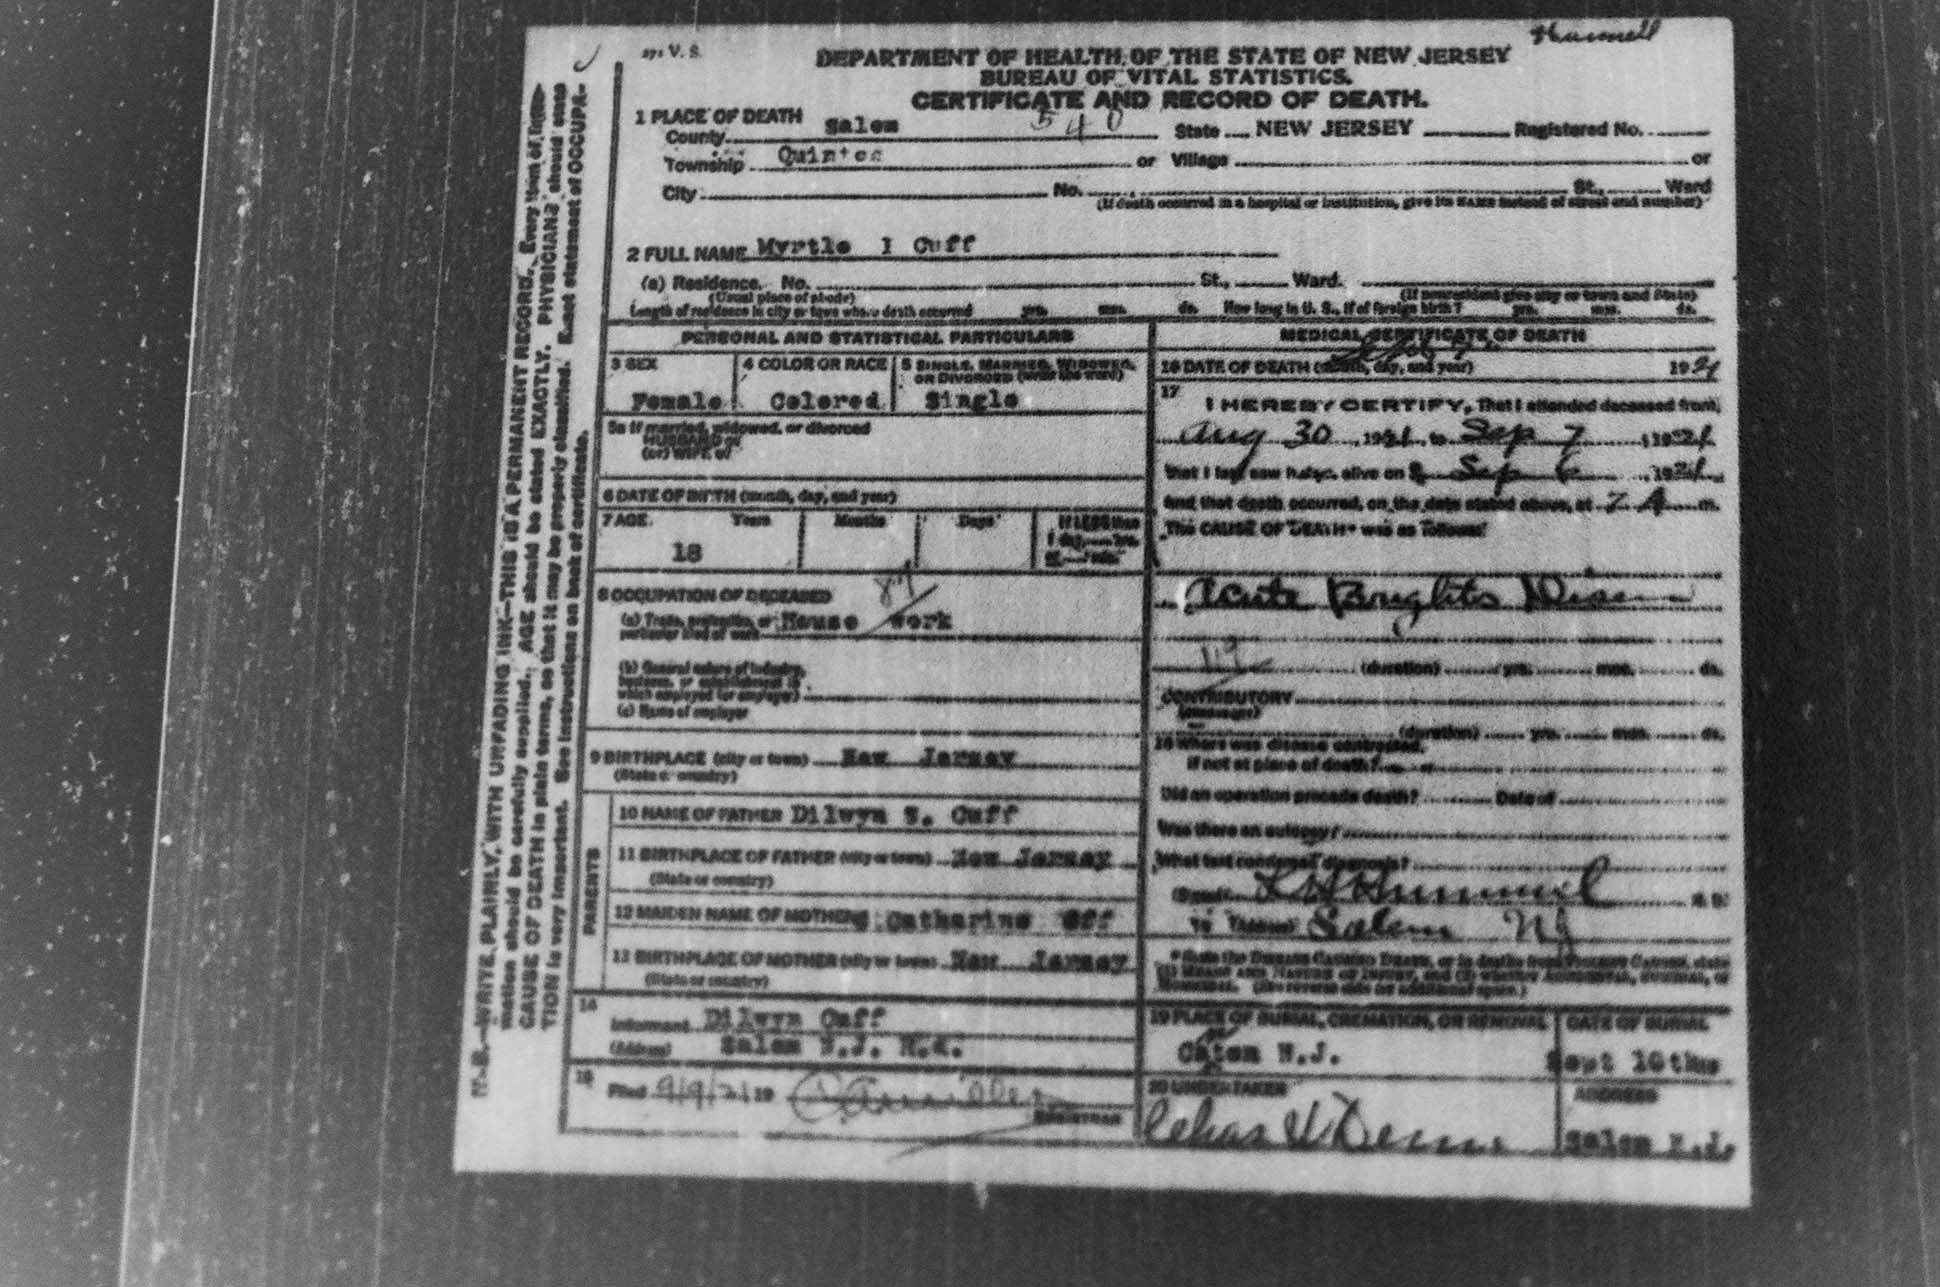 Hummell
271 V. S.
DEPARTMENT OF HEALTH OF THE STATE OF NEW JERSEY
BUREAU OF VITAL STATISTICS.
CERTIFICATE AND RECORD OF DEATH.
1 PLACE OF DEATH
County Salem 540 State NEW JERSEY Registered No.
Township Quinton or Village or
City No. St., Ward
(If death occurred in a hospital or institution, give its NAME instead of street and number)
2 FULL NAME Myrtle I Cuff
(a) Residence. No. St., Ward.
(Usual place of abode) (If nonresident give city or town and State)
Length of residence in city or town where death occurred yrs. mos. ds. How long in U. S., if of foreign birth? yrs. mos. ds.
PERSONAL AND STATISTICAL PARTICULARS
3 SEX 4 COLOR OR RACE 5 SINGLE, MARRIED, WIDOWED,
OR DIVORCED (write the word)
Female Colored Single
5a If married, widowed, or divorced
HUSBAND of
(or) WIFE of
6 DATE OF BIRTH (month, day, and year)
7 AGE Years Months Days If LESS than
1 day, hrs.
or min.
18
8 OCCUPATION OF DECEASED
(a) Trade, profession, or House work
particular kind of work
(b) General nature of industry,
business, or establishment in
which employed (or employer)
(c) Name of employer
9 BIRTHPLACE (city or town) New Jersey
(State or country)
PARENTS
10 NAME OF FATHER Dilwyn S. Cuff
11 BIRTHPLACE OF FATHER (city or town) New Jersey
(State or country)
12 MAIDEN NAME OF MOTHER Catharine Off
13 BIRTHPLACE OF MOTHER (city or town) New Jersey
(State or country)
14
Informant Dilwyn Cuff
(Address) Salem N.J. R.d.
15
Filed 9/9/21 19
REGISTRAR
MEDICAL CERTIFICATE OF DEATH
16 DATE OF DEATH (month, day, and year) Sept 7" 1921
17
I HEREBY CERTIFY, That I attended deceased from
Aug 30, 1921, to Sep 7, 1921
that I last saw h alive on Sep 6, 1921
and that death occurred, on the date stated above, at 7 A m.
The CAUSE OF DEATH* was as follows:
Acute Brights Disease
119 (duration) yrs. mos. ds.
CONTRIBUTORY
(Secondary)
(duration) yrs. mos. ds.
18 Where was disease contracted,
if not at place of death?
Did an operation precede death? Date of
Was there an autopsy?
What test confirmed diagnosis?
(Signed) L H Hummel M. D.
19 (Address) Salem NJ
* State the DISEASE CAUSING DEATH, or in deaths from VIOLENT CAUSES, state
(1) MEANS AND NATURE OF INJURY, and (2) whether ACCIDENTAL, SUICIDAL, or
HOMICIDAL. (See reverse side for additional space.)
19 PLACE OF BURIAL, CREMATION, OR REMOVAL DATE OF BURIAL
N.J. Sept 10th
20 UNDERTAKER ADDRESS
Chas Salem N.J.
N. B.—WRITE PLAINLY, WITH UNFADING INK—THIS IS A PERMANENT RECORD. Every item of infor-
mation should be carefully supplied. AGE should be stated EXACTLY. PHYSICIANS should state
CAUSE OF DEATH in plain terms, so that it may be properly classified. Exact statement of OCCUPA-
TION is very important. See instructions on back of certificate.